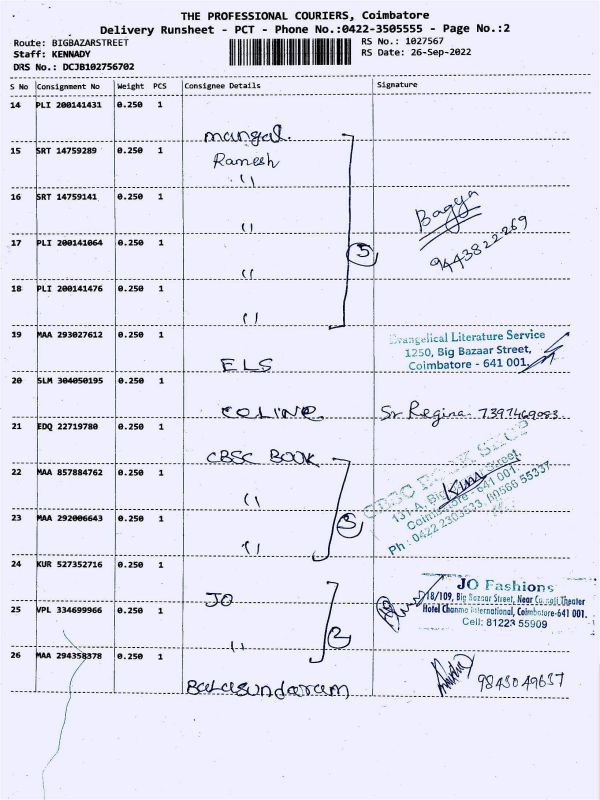 THE PROFESSIONAL COURIERS, Coimbatore
Delivery Runsheet - PCT - Phone No.:0422-3505555 - Page No.:2
Route: BIGBAZARSTREET
RS No.: 1027567
Staff: KENNADY
RS Date: 26-Sep-2022
DRS No.: DCJB102756702
S No Consignment No Weight PCS Consignee Details Signature
14 PLI 200141431 0.250 1
mangal.
15 SRT 14759289 0.250 1
Ramesh
"
16 SRT 14759141 0.250 1
Bagya
"
9443822269
17 PLI 200141064 0.250 1
5
"
18 PLI 200141476 0.250 1
"
19 MAA 293027612 0.250 1
Evangelical Literature Service
1250, Big Bazaar Street,
Coimbatore - 641 001.
ELS
20 SLM 304050195 0.250 1
COLINE Sr Regina 7397469083
21 EDQ 22719780 0.250 1
CBSC BOOK
CBSC BOOK SHOP
131-A, Big Street
Coimbatore - 641 001.
Ph : 0422 2303533, 55337
22 MAA 857884762 0.250 1
"
23 MAA 292006643 0.250 1
3
"
24 KUR 527352716 0.250 1
JO
JO Fashions
18/109, Big Bazaar Street, Near Theater
Hotel Channma International, Coimbatore-641 001.
Cell: 81223 55909
25 VPL 334699966 0.250 1
2
"
26 MAA 294358378 0.250 1
Balasundaram 9843049637